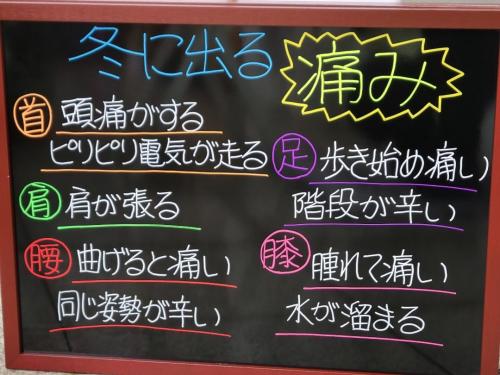 冬に出る 痛み
首 頭痛がする
ピリピリ電気が走る
肩 肩が張る
腰 曲げると痛い
同じ姿勢が辛い
足 歩き始め痛い
階段が辛い
膝 腫れて痛い
水が溜まる